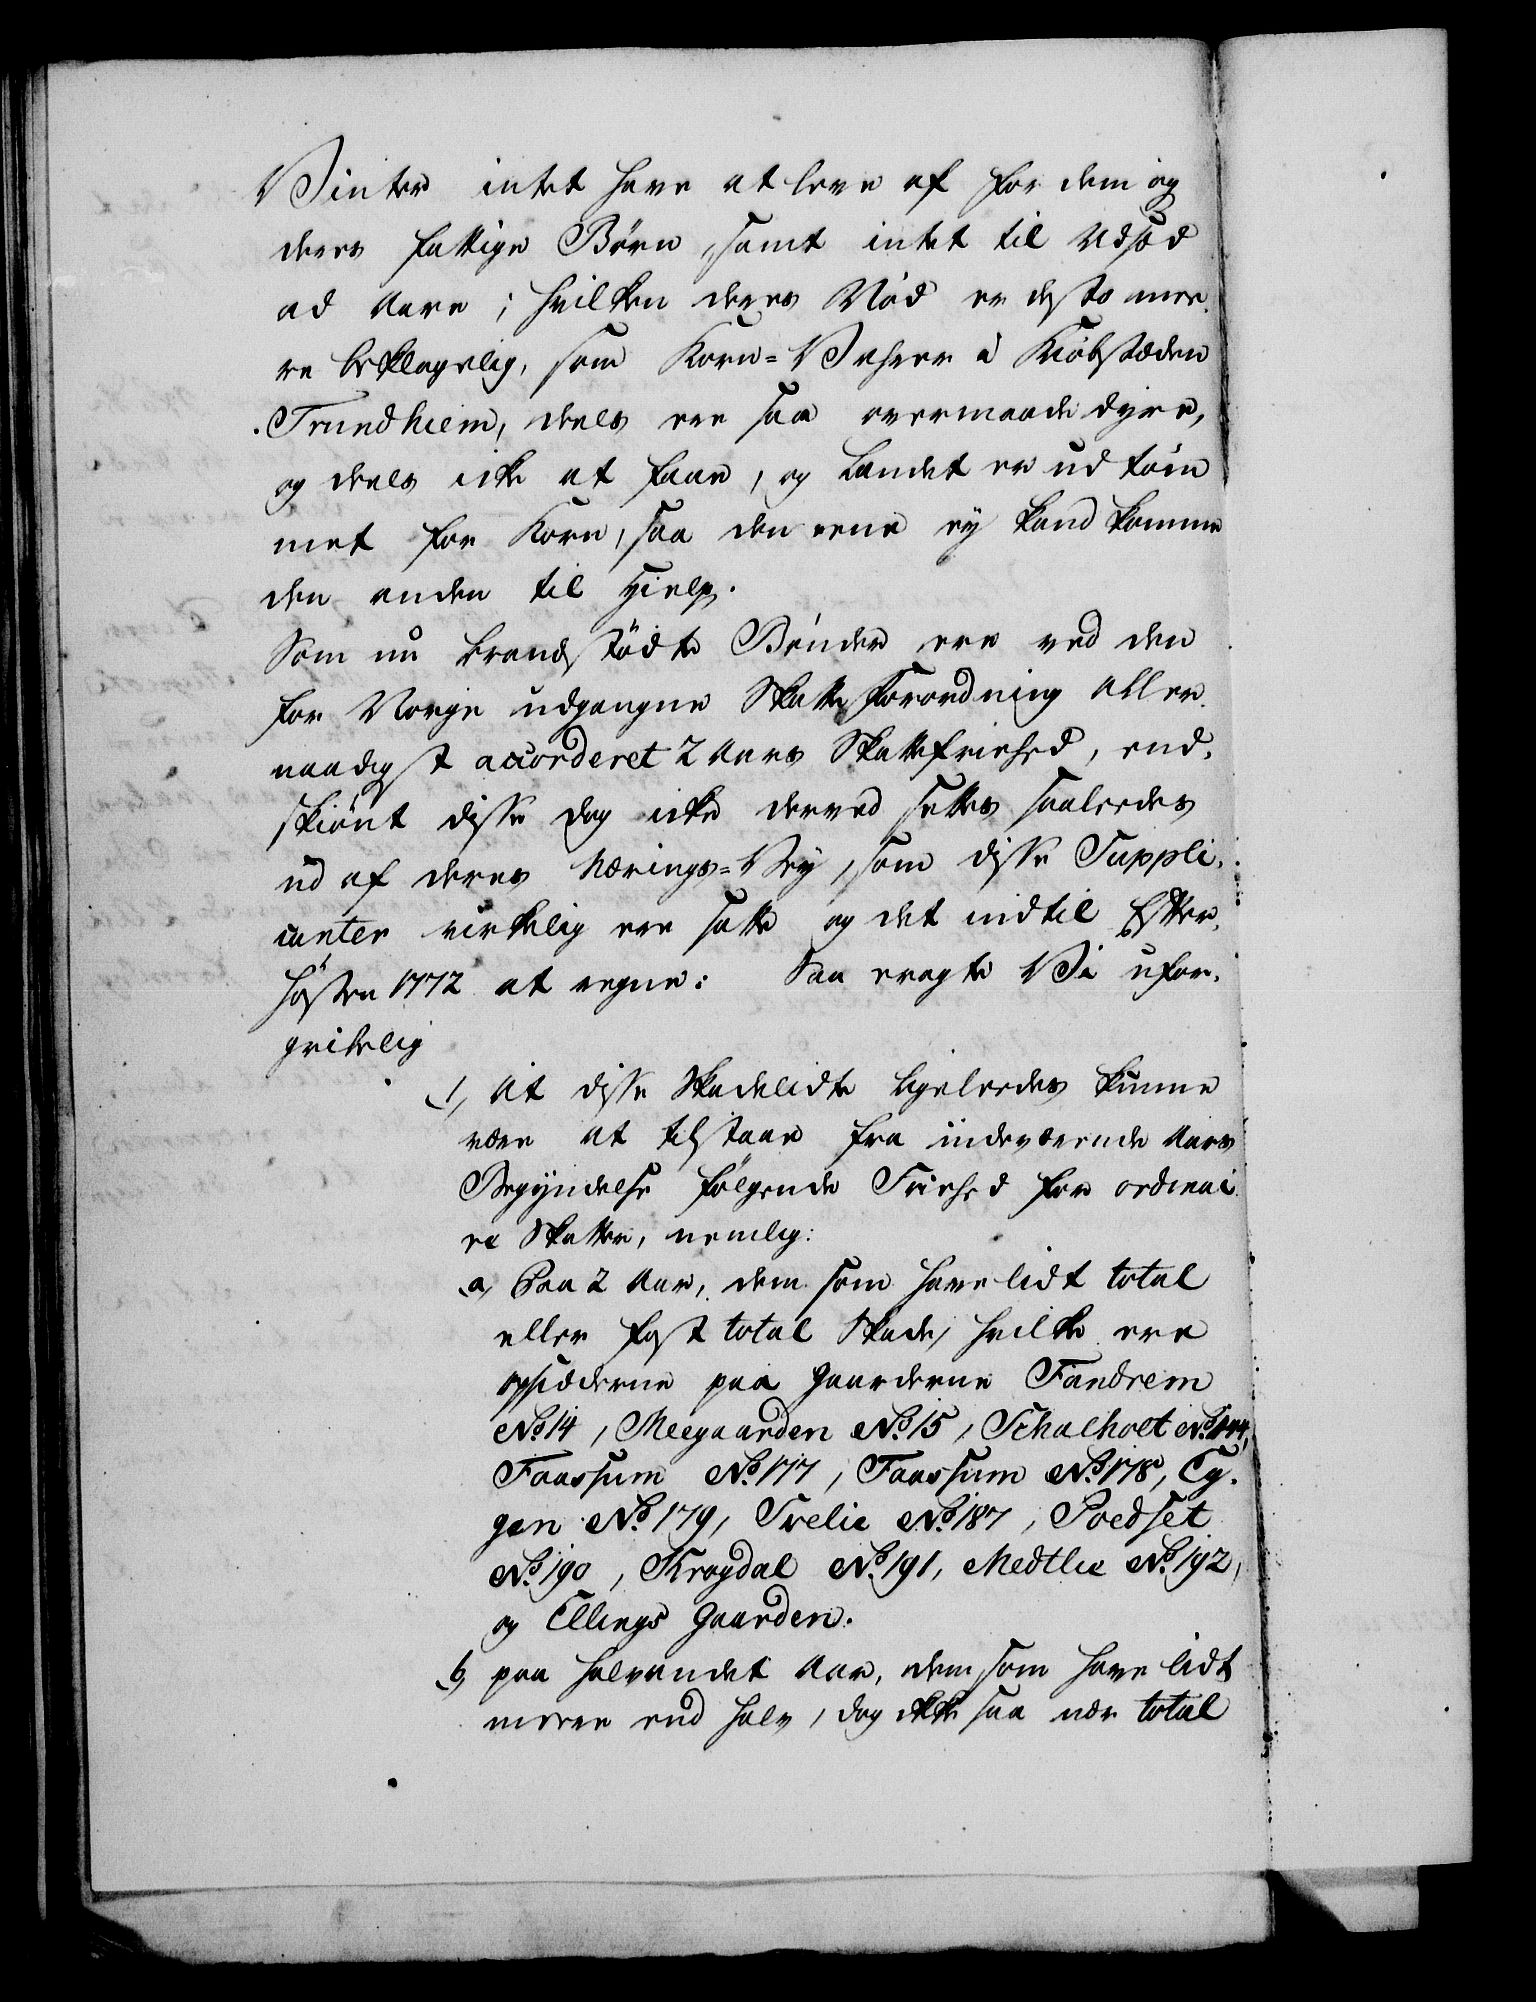 Vinter intet have at leve af for dem og
deres fattige Børn, samt intet til Udsæd
ad Aare; hvilken deres Nød er desto mee-
re beklagelig, som Korn-Vahrer i Kiøbstæden
Trundhiem, deels ere saa overmaade dyre,
og deels icke at faae, og Landet er udtøm
met for Korn, saa den eene ey kand komme
den anden til Hielp.
Som nu brandstødte Bønder ere ved den
for Norge udgangne Skatte Forordning aller-
naadigst accorderet 2 Aars Skattefriehed, end-
skiønt disse dog icke derved settes saaledes
ud af deres Nærings-Vey, som disse Suppli-
canter virkelig ere satte og det indtil Efter-
høsten 1772 at regne: Saa eragte Vi ufor-
gribelig
1, At disse Skadelidte ligeledes kunne
være at tilstaae fra indeværende Aars
Begyndelse følgende Friehed for ordinai
re Skatter, nemlig:
a, Paa 2 Aar, dem som have lidt total
eller fast total Skade, hvilke ere
opsidderne paa Gaarderne Fandrem
No. 14, Meegaarden No. 15, Schalholt
Faassum No. 177, Faassum No. 178, Ey-
gen No. 179, Trelie No. 187, Poedset
No. 190, Krogdal No. 191, Medtlie No. 192,
og Ellings Gaarden.
b, paa halvandet Aar, dem, som have lidt
meere end halv, dog ikke saa nær total